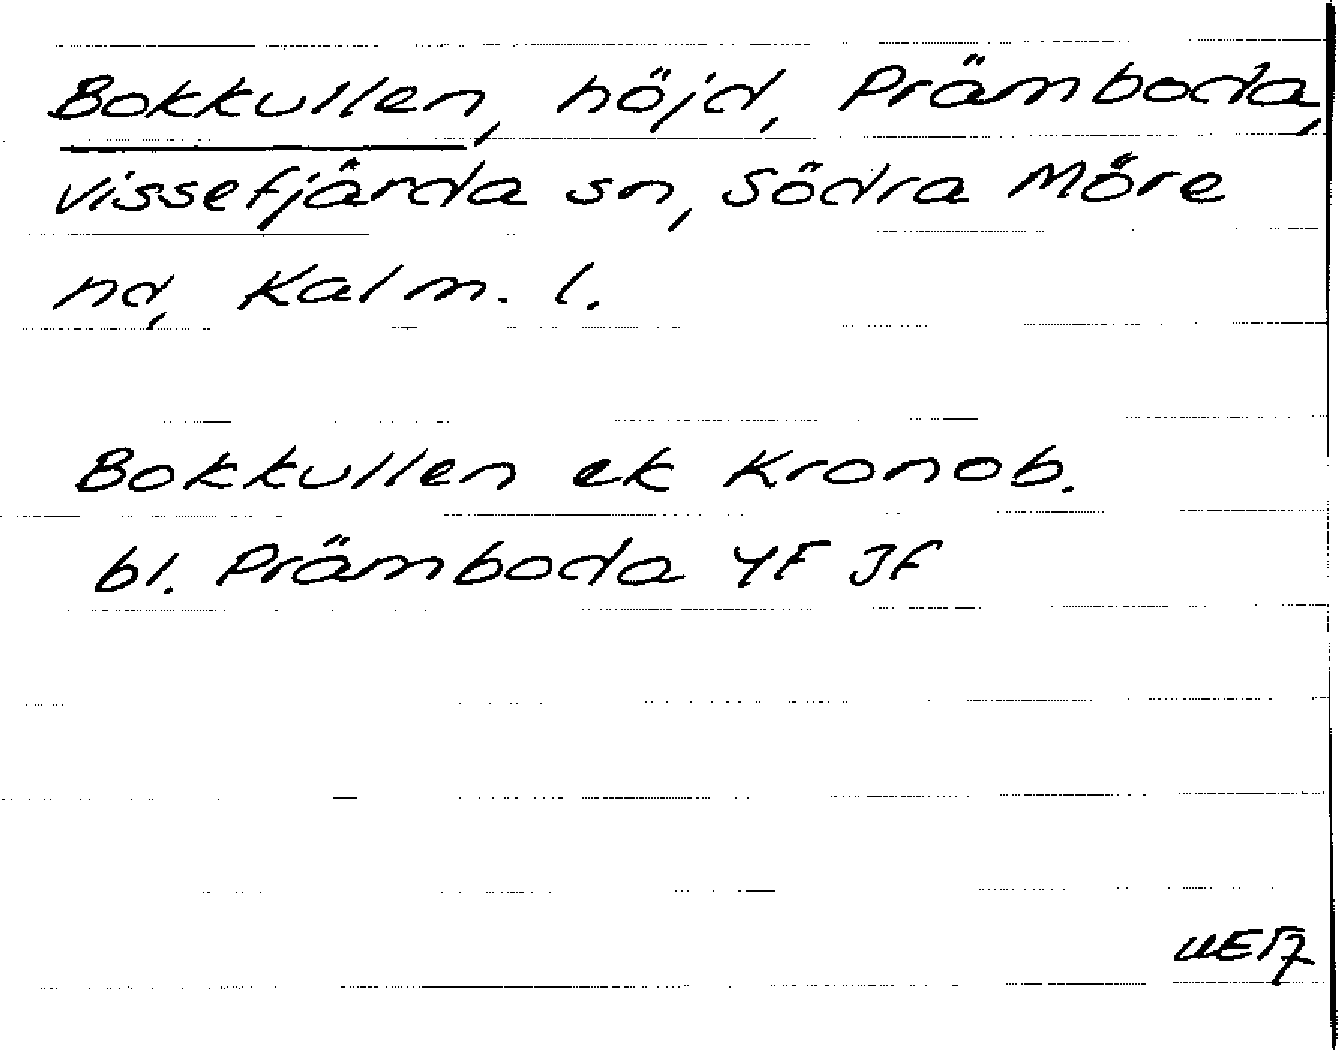 Bokkullen, höjd, Främboda,
Vissefjärda sn, Södra Möre
hd, Kalm. l.
Bokkullen ek Kronob.
bl. Främboda 4F Jf